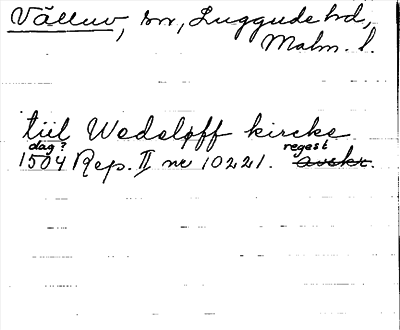 Välluv, sn, Luggude hd,
Malm. l.
tiil Wedeløff kircke
dag? regest
1504 Rep. II nr 10221. avskr.